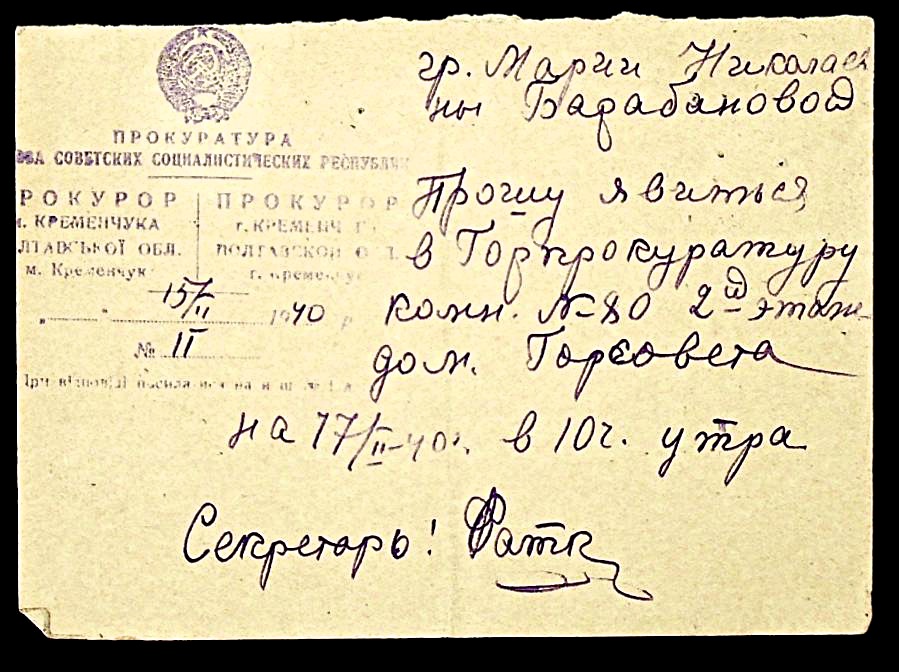 ПРОКУРАТУРА
СОВЕТСКИХ СОЦИАЛИСТИЧЕСКИХ РЕСПУБЛИК
РОКУРОР
м. КРЕМЕНЧУКА
ЛТАВСЬКОЇ ОБЛ.
м. Кременчук
ПРОКУРОР
г. КРЕМЕНЧ
ПОЛТАВСКОЙ О Л.
г. Кременчуг
15/II 1940 р
№ 11
При відповіді посилатися на
гр. Марии Николаев
ны Барабановой
Прошу явиться
в Горпрокуратуру
комн. № 80 2й этаж
дом. Горсовета
на 17/II-40г. в 10ч. утра
Секретарь!